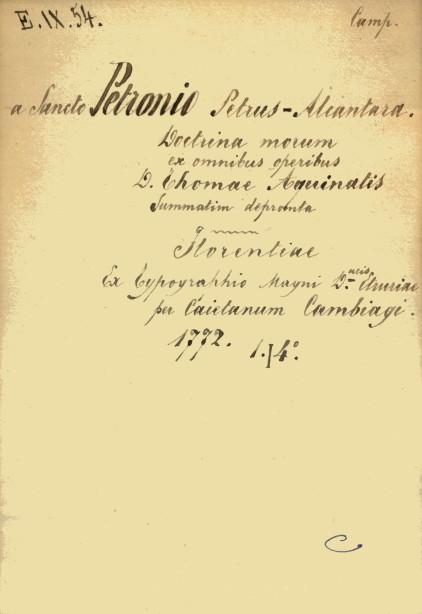 E.IX.54. Camp.
a Sancto Petronio Petrus-Alcantara.
Doctrina morum
ex omnibus operibus
D. Thomae Aquinatis
summatim depromta
Florentiae
Ex Typographio Magni D.ucis Etruriae
per Caietanum Cambiagi.
1772. 1.|4°.